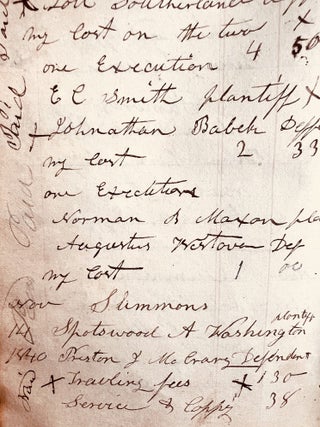 Southerland
my Cost on the two 4 50
one Execution
E C Smith plantiff X
Johnathan Babck Deff
my Cost 2 33
one Execution
Norman B Maxon pla
Augustus Westover Def
my Cost 1 00
Nov Summons
14 Spotswood A Washington plantiff
1840 Preston & McCrary Defendent
Paid X Travling fees X 1 30
Service & Coppy 38
Paid